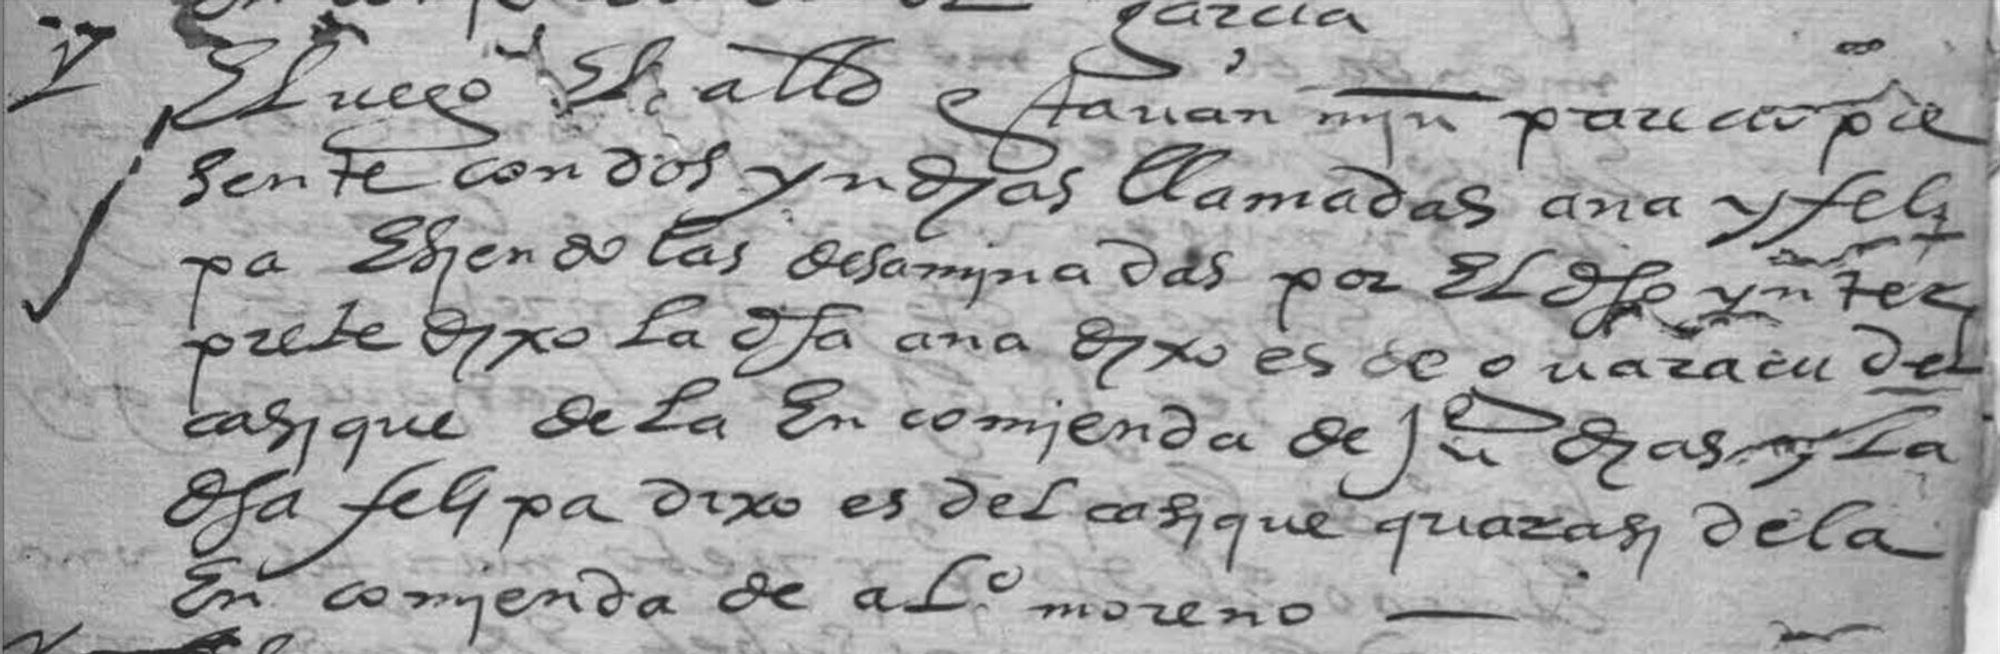 garcia
E luego El allde estauan myn parecio pre
sente con dos yndias llamadas ana y feli
pa E siendo las desamynadas por El dho ynter
prete dixo la dha ana dixo es de ouaracu del
casique de la En comyenda de Ju dias y la
dha felipa dixo es del casique quarasi de la
En comyenda de alº moreno